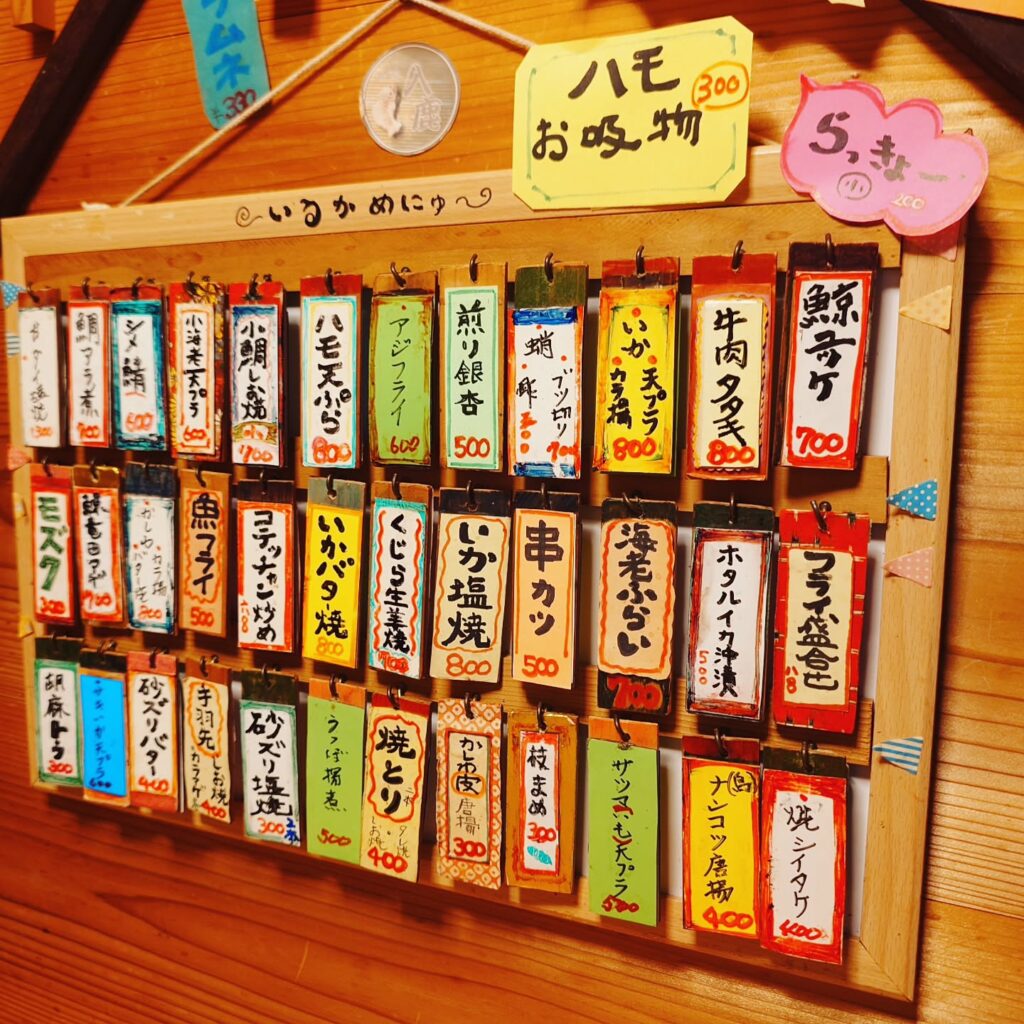 ラムネ
¥330
ハモ
お吸物
300
らっきょ
小
200
いるかめにゅ
鯨ユッケ
700
牛肉タタキ
800
いか 天プラ
カラ揚
800
蛸 ブツ切り
700
煎り銀杏
500
アジフライ
600
ハモ天ぷら
800
小鯛しお焼
小
700
小海老天プラ
600
シメ鯖
600
鯛アラ煮
700
フライ盛合せ
八8
ホタルイカ沖漬
500
海老ふらい
700
串カツ
500
いか塩焼
800
くじら生姜焼
いかバター焼
800
コテッチャン炒め
六八8
魚フライ
500
モズク
300
焼シイタケ
400
ナンコツ唐揚
400
サツマいも天プラ
500
枝まめ
300
かしわ皮唐揚
300
焼とり
二本
タレ焼
しお焼
400
うつぼ揚煮
500
砂ズリ塩焼
300
手羽先
しお焼
カラアゲ
400
砂ズリバター
400
天プラ
600
胡麻トーフ
300